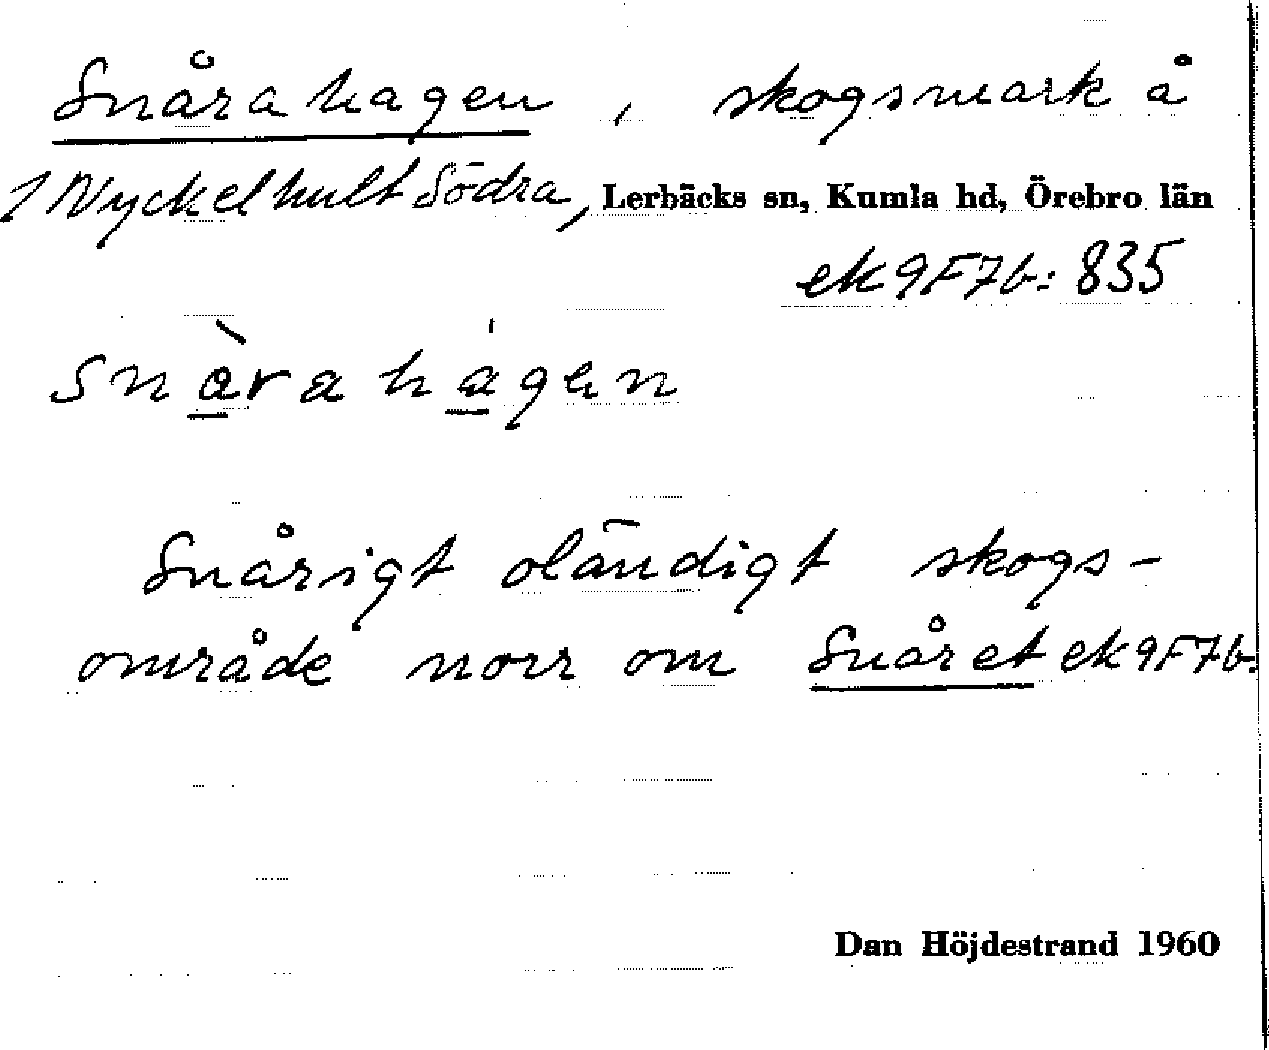 Snårahagen, skogsmark å
1 Nyckelhult Södra, Lerbäcks sn, Kumla hd, Örebro län
ek 9F7b: 835
snàrahágen
Snårigt oländigt skogs-
område norr om Snåret ek 9F7b:
Dan Höjdestrand 1960